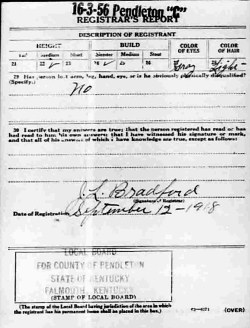 16-3-56 Pendleton "C"
REGISTRAR'S REPORT
DESCRIPTION OF REGISTRANT
HEIGHT BUILD COLOR OF EYES COLOR OF HAIR
Tall Medium Short Slender Medium Stout
21 22 ✓ 23 24 ✓ 25 26 27 Gray 28 Light
29 Has person lost arm, leg, hand, eye, or is he obviously physically disqualified?
(Specify.)
No
30 I certify that my answers are true; that the person registered has read or has
had read to him his own answers; that I have witnessed his signature or mark,
and that all of his answers of which I have knowledge are true, except as follows:
J. L. Bradford
(Signature of Registrar)
Date of Registration September 12-1918
LOCAL BOARD
FOR COUNTY OF PENDLETON
STATE OF KENTUCKY
FALMOUTH, KENTUCKY
(STAMP OF LOCAL BOARD)
(The stamp of the Local Board having jurisdiction of the area in which
the registrant has his permanent home shall be placed in this box.)
(OVER)